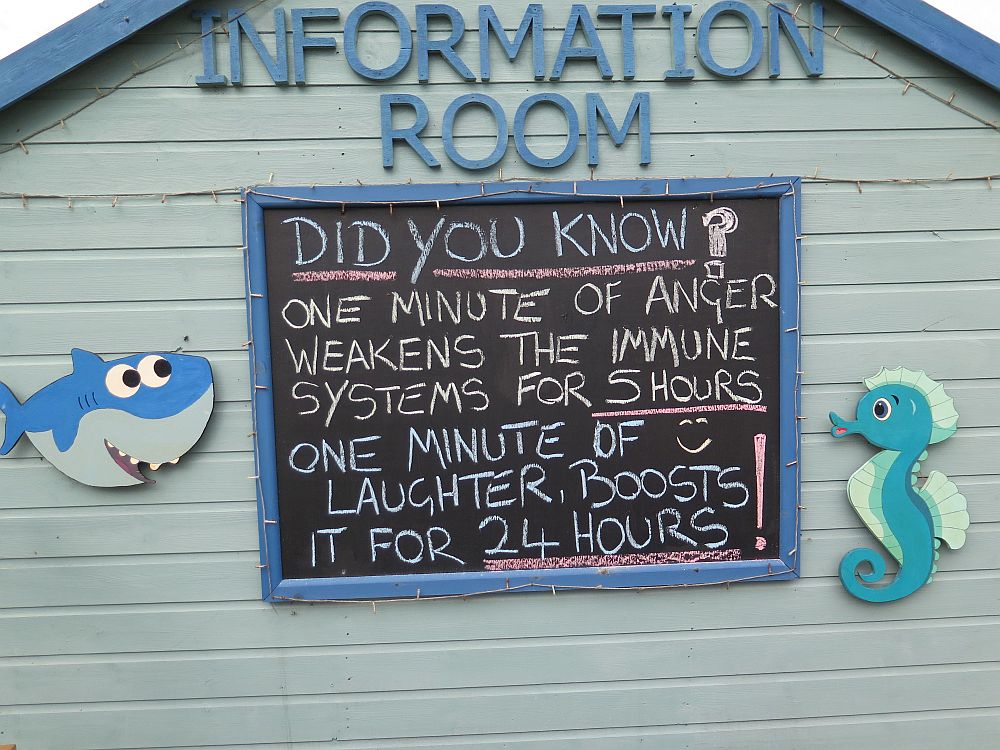 INFORMATION
ROOM
DID YOU KNOW?
ONE MINUTE OF ANGER
WEAKENS THE IMMUNE
SYSTEMS FOR 5 HOURS
ONE MINUTE OF
LAUGHTER, BOOSTS
IT FOR 24 HOURS!